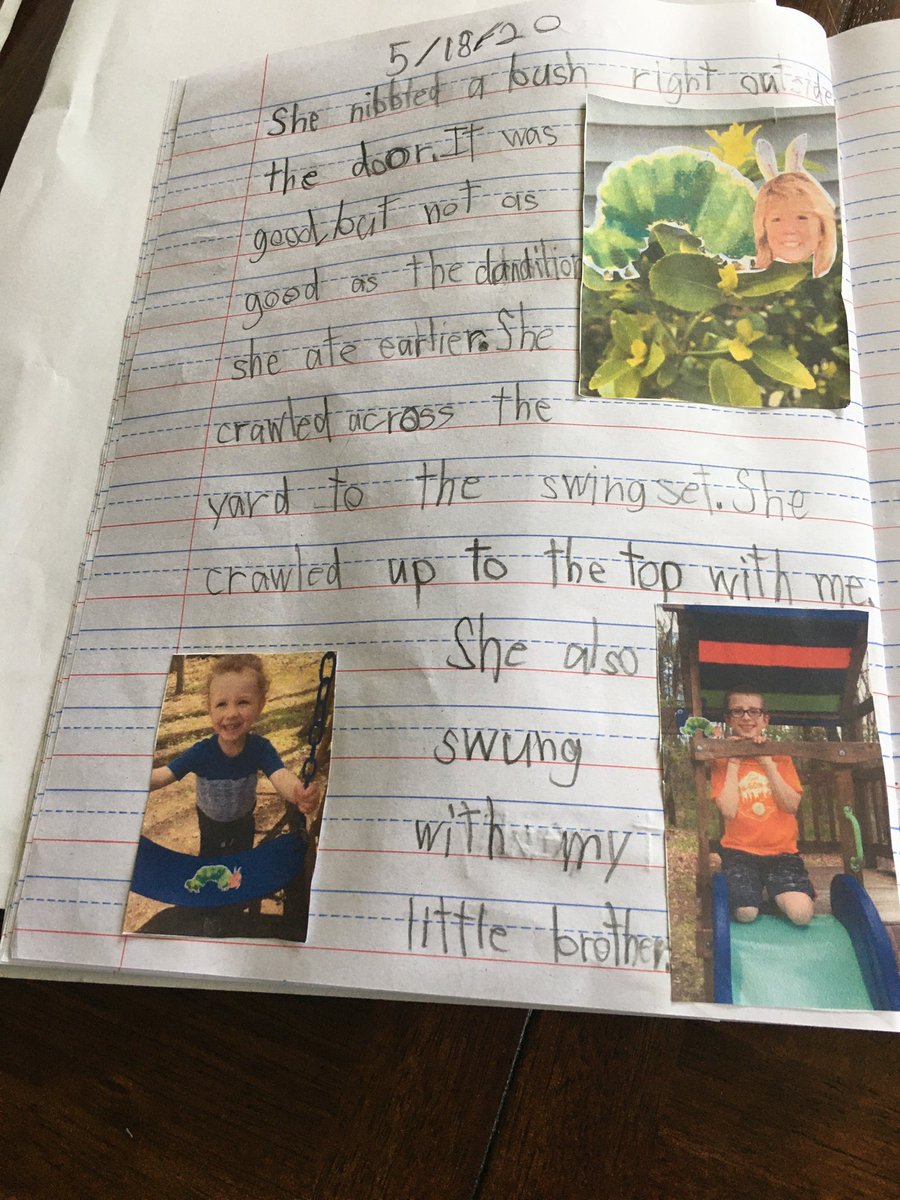 5/18/20
She nibbled a bush right outside
the door. It was
good, but not as
good as the dandilion
she ate earlier. She
crawled across the
yard to the swing set. She
crawled up to the top with me.
She also
swung
with my
little brother.